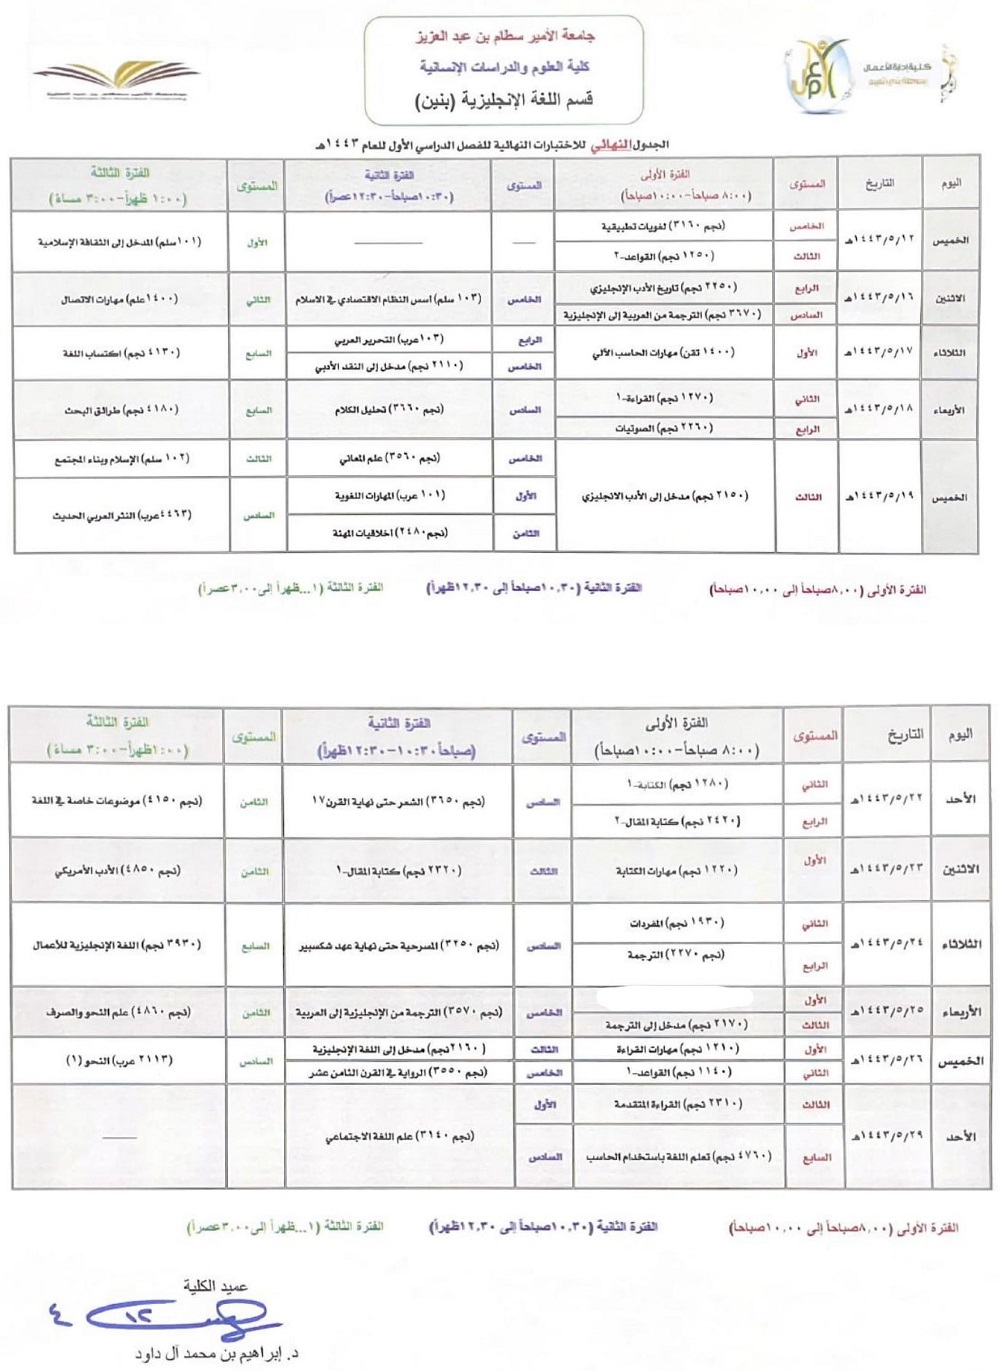 جامعة الأمير سطام بن عبد العزيز
كلية العلوم والدراسات الإنسانية
قسم اللغة الإنجليزية (بنين)
كلية إدارة الأعمال
الجدول النهائي للاختبارات النهائية للفصل الدراسي الأول للعام ١٤٤٣هـ
اليوم التاريخ المستوى الفترة الأولى المستوى الفترة الثانية المستوى الفترة الثالثة
(٨:٠٠ صباحاً-١٠:٠٠صباحاً) (١٠:٣٠صباحاً-١٢:٣٠عصراً) (١:٠٠ ظهراً-٣:٠٠ مساءً)
الخميس ١٤٤٣/٥/١٢هـ
الخامس (نجم ٣١٦٠) لغويات تطبيقية
الثالث (١٢٥٠ نجم) القواعد-٢
الأول (١٠١سلم) المدخل إلى الثقافة الإسلامية
الاثنين ١٤٤٣/٥/١٦هـ
الرابع (٢٢٥٠ نجم) تاريخ الأدب الإنجليزي
السادس (٣٦٧٠ نجم) الترجمة من العربية إلى الإنجليزية
الخامس (١٠٣ سلم) أسس النظام الاقتصادي في الاسلام
الثاني (١٤٠٠علم) مهارات الاتصال
الثلاثاء ١٤٤٣/٥/١٧هـ
الأول (١٤٠٠ تقن) مهارات الحاسب الآلي
الرابع (١٠٣عرب) التحرير العربي
الخامس (٢١١٠ نجم) مدخل إلى النقد الأدبي
السابع (٤١٣٠ نجم) اكتساب اللغة
الأربعاء ١٤٤٣/٥/١٨هـ
الثاني (١٢٧٠ نجم) القراءة-١
الرابع (٢٢٦٠ نجم) الصوتيات
السادس (نجم ٣٦٦٠) تحليل الكلام
السابع (٤١٨٠ نجم) طرائق البحث
الخميس ١٤٤٣/٥/١٩هـ
الثالث (٢١٥٠ نجم) مدخل إلى الأدب الانجليزي
الخامس (نجم ٣٥٦٠) علم المعاني
الأول (١٠١ عرب) المهارات اللغوية
الثامن (نجم ٢٤٨٠) اخلاقيات المهنة
الثالث (١٠٢ سلم) الإسلام وبناء المجتمع
السادس (٤٤٦٣عرب) النثر العربي الحديث
الفترة الأولى (٨,٠٠صباحاً إلى ١٠,٠٠صباحاً) الفترة الثانية (١٠,٣٠صباحاً إلى ١٢,٣٠ظهراً) الفترة الثالثة (١...ظهراً إلى ٣,٠٠عصراً)
اليوم التاريخ المستوى الفترة الأولى المستوى الفترة الثانية المستوى الفترة الثالثة
(٨:٠٠ صباحاً-١٠:٠٠صباحاً) (صباحاً١٠:٣٠-١٢:٣٠ظهراً) (١:٠٠ظهراً-٣:٠٠ مساءً)
الأحد ١٤٤٣/٥/٢٢هـ
الثاني (١٢٨٠ نجم) الكتابة-١
الرابع (٢٤٢٠ نجم) كتابة المقال-٢
السادس (نجم ٣٦٥٠) الشعر حتى نهاية القرن١٧
الثامن (نجم ٤١٥٠) موضوعات خاصة في اللغة
الاثنين ١٤٤٣/٥/٢٣هـ
الأول (١٢٢٠ نجم) مهارات الكتابة
الثالث (٢٣٢٠ نجم) كتابة المقال-١
الثامن (نجم ٤٨٥٠) الأدب الأمريكي
الثلاثاء ١٤٤٣/٥/٢٤هـ
الثاني (١٩٣٠ نجم) المفردات
الرابع (نجم ٢٢٧٠) الترجمة
السادس (نجم ٣٢٥٠) المسرحية حتى نهاية عهد شكسبير
السابع (٣٩٣٠ نجم) اللغة الإنجليزية للأعمال
الأربعاء ١٤٤٣/٥/٢٥هـ
الأول
الثالث (٢١٧٠ نجم) مدخل إلى الترجمة
الخامس (نجم ٣٥٧٠) الترجمة من الإنجليزية إلى العربية
الثامن (نجم ٤٨٦٠) علم النحو والصرف
الخميس ١٤٤٣/٥/٢٦هـ
الأول (١٢١٠ نجم) مهارات القراءة
الثاني (١١٤٠ نجم) القواعد-١
الثالث (٢١٦٠نجم) مدخل إلى اللغة الإنجليزية
الخامس (نجم ٣٥٥٠) الرواية في القرن الثامن عشر
السادس (٢١١٣ عرب) النحو (١)
الأحد ١٤٤٣/٥/٢٩هـ
الثالث (٢٣١٠ نجم) القراءة المتقدمة
السابع (٤٧٦٠ نجم) تعلم اللغة باستخدام الحاسب
الأول
السادس (نجم ٣١٤٠) علم اللغة الاجتماعي
الفترة الأولى (٨,٠٠صباحاً إلى ١٠,٠٠صباحاً) الفترة الثانية (١٠,٣٠صباحاً إلى ١٢,٣٠ظهراً) الفترة الثالثة (١...ظهراً إلى ٣,٠٠عصراً)
عميد الكلية
د. إبراهيم بن محمد آل داود